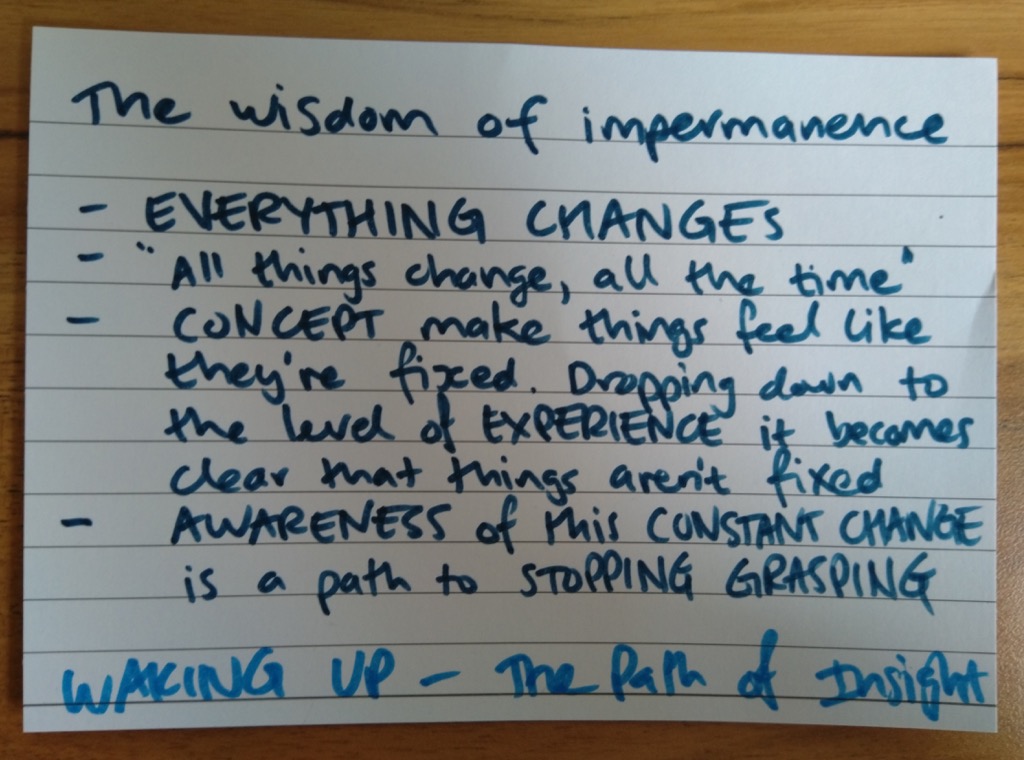 The wisdom of impermanence
- EVERYTHING CHANGES
- "All things change, all the time"
- CONCEPT make things feel like
they're fixed. Dropping down to
the level of EXPERIENCE it becomes
clear that things aren't fixed
- AWARENESS of this CONSTANT CHANGE
is a path to STOPPING GRASPING
WAKING UP - The Path of Insight